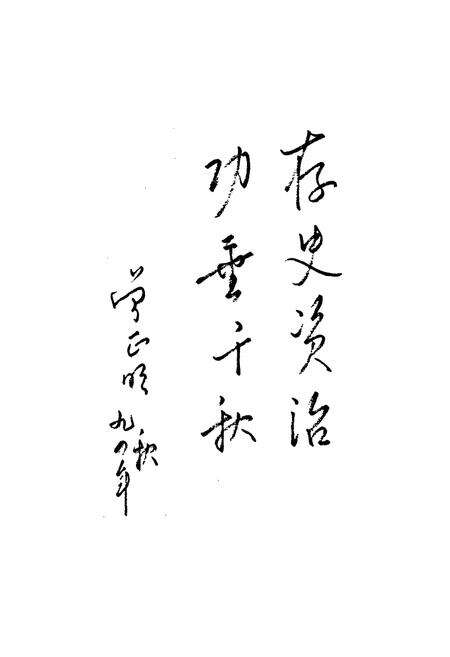 存史资治
功垂千秋
曾正明
九四年秋